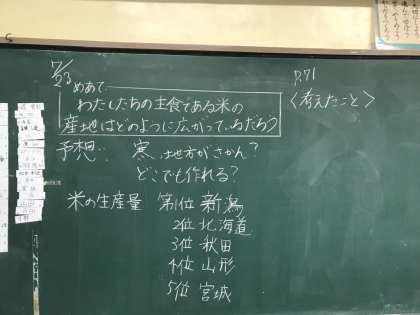 7/23
めあて
わたしたちの主食である米の
産地はどのように広がっているだろう
予想: 寒い地方がさかん?
どこでも作れる?
米の生産量 第1位 新潟
2位 北海道
3位 秋田
4位 山形
5位 宮城
P.71
<考えたこと>